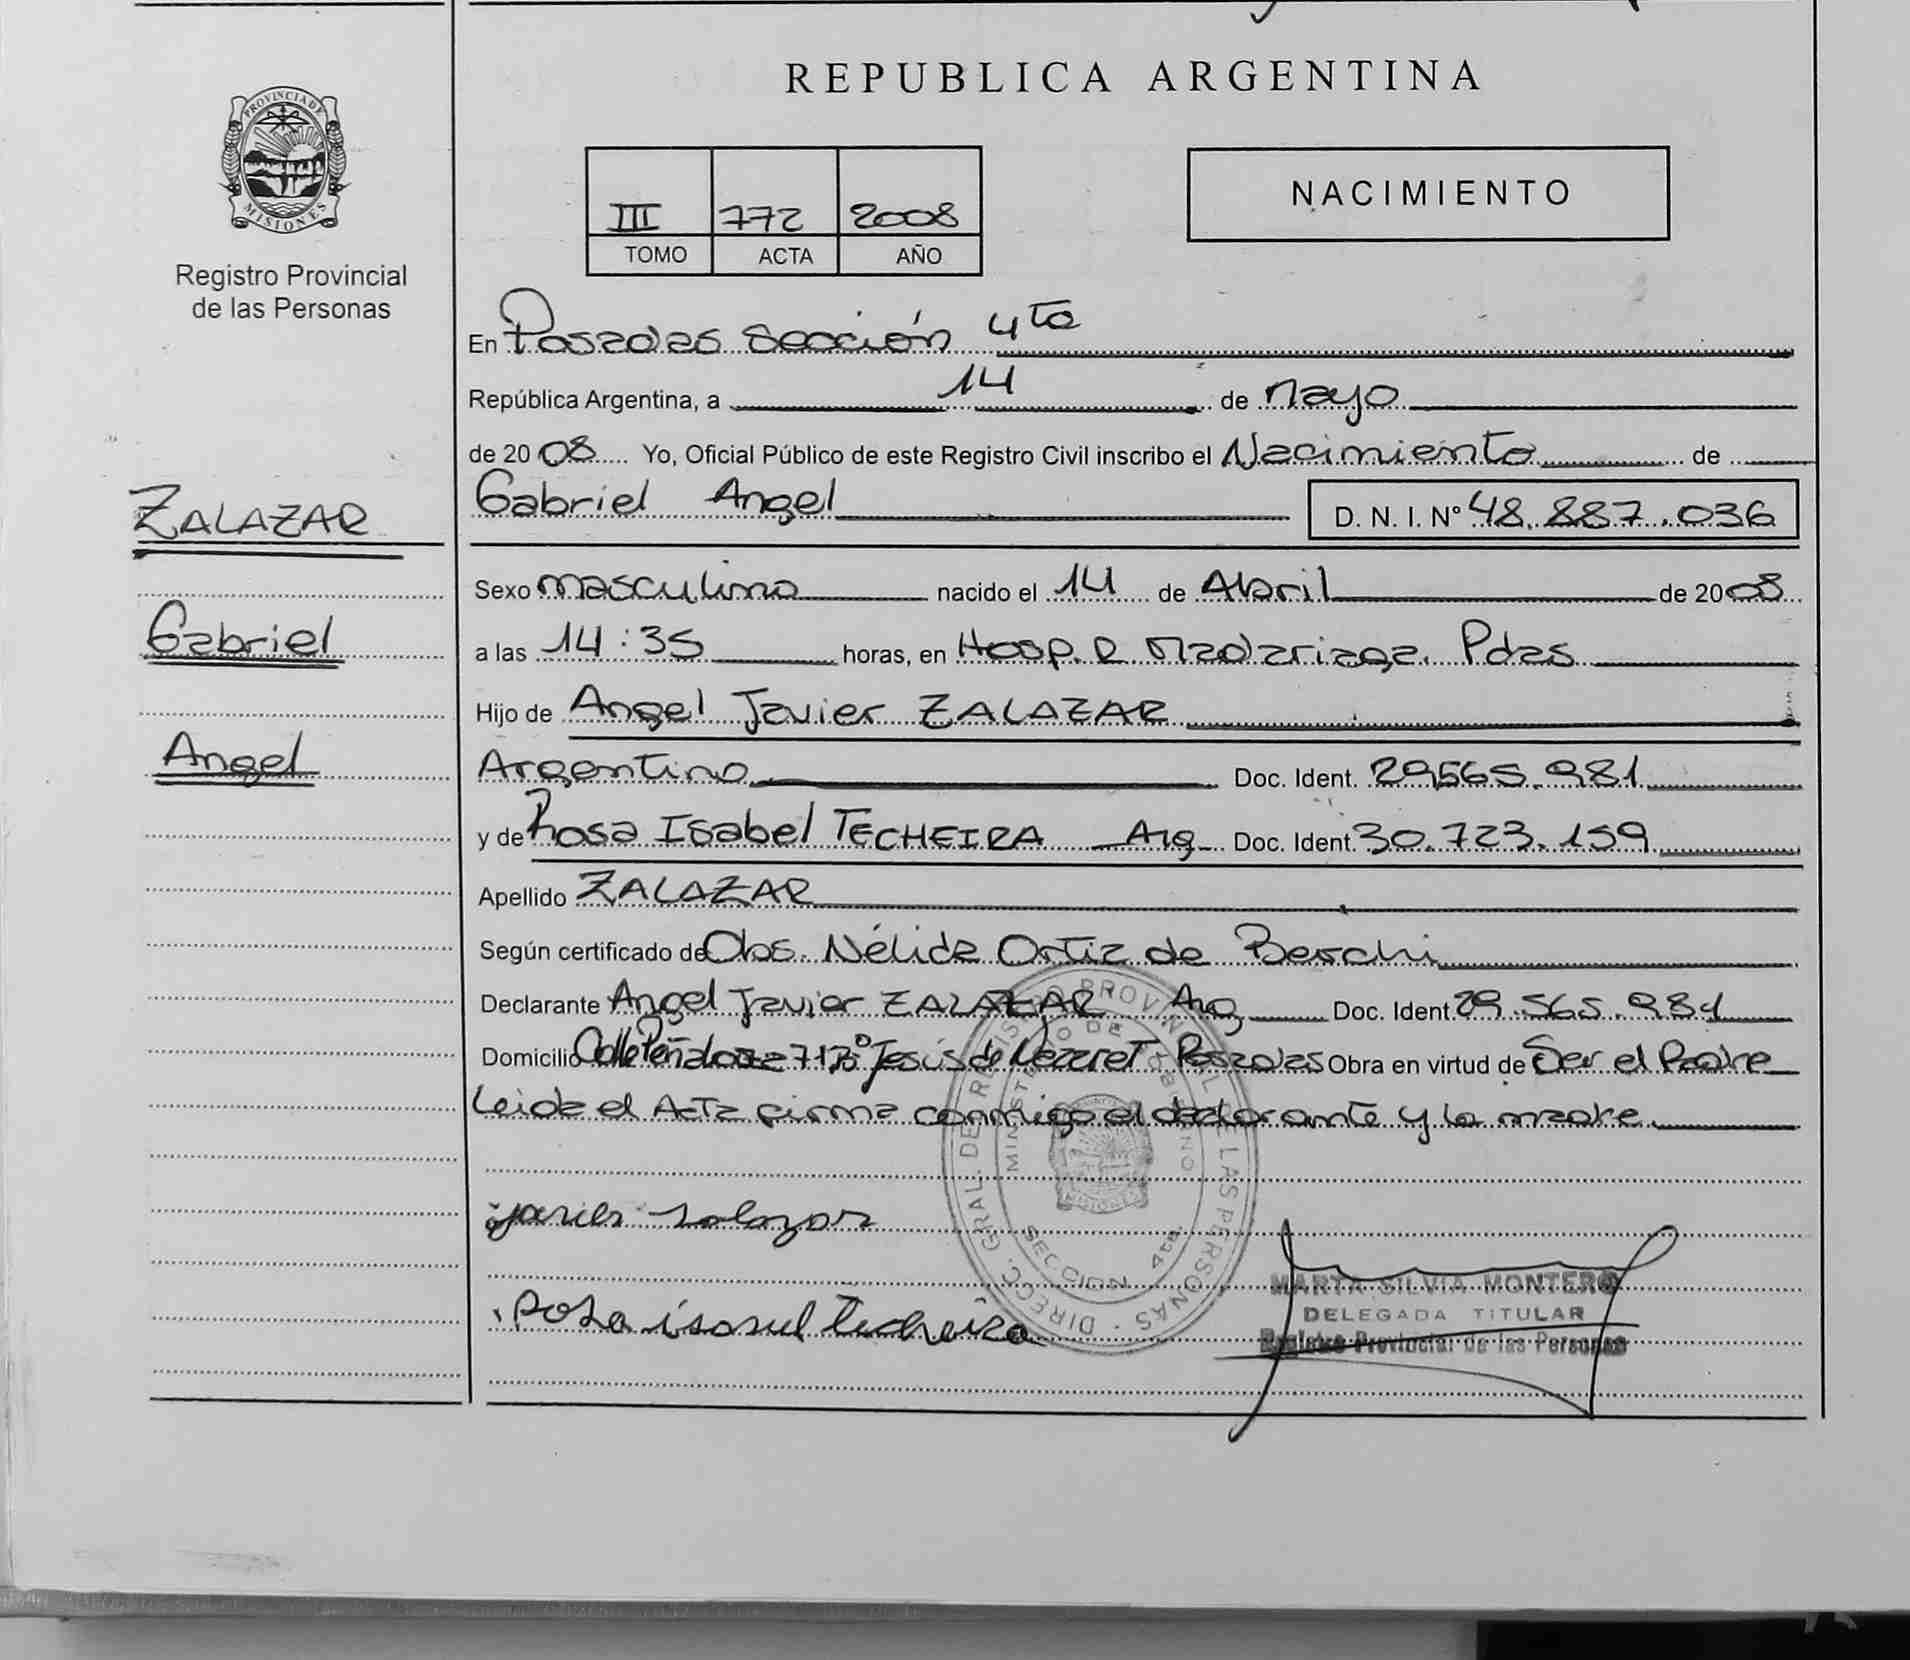 REPUBLICA ARGENTINA
PROVINCIA DE
MISIONES
Registro Provincial
de las Personas
III 772 2008
TOMO ACTA AÑO
NACIMIENTO
En Posadas Sección 4ta
República Argentina, a 14 de Mayo
de 2008 Yo, Oficial Público de este Registro Civil inscribo el Nacimiento de
Gabriel Angel D. N. I. Nº 48.887.036
ZALAZAR
Gabriel
Angel
Sexo masculino nacido el 14 de Abril de 2008
a las 14:35 horas, en Hosp. R Madariaga. Pdas
Hijo de Angel Javier ZALAZAR
Argentino Doc. Ident. 29565.981
y de Rosa Isabel TECHEIRA Arg Doc. Ident. 30.723.159
Apellido ZALAZAR
Según certificado de Obs. Nélida Ortiz de Berchi
Declarante Angel Javier ZALAZAR Arg Doc. Ident 29.565.981
Domicilio Calle 7173 Jesús de Nazaret Posadas Obra en virtud de Ser el Padre
Leida el Acta firma conmigo el declarante y la madre
DIRECC. GRAL. DE REGISTRO PROVINCIAL DE LAS PERSONAS
MINISTERIO DE GOBIERNO
SECCION 4ta.
MISIONES
javier salazar
MARTA SILVIA MONTERO
DELEGADA TITULAR
Registro Provincial de las Personas
rosa isabel techeira